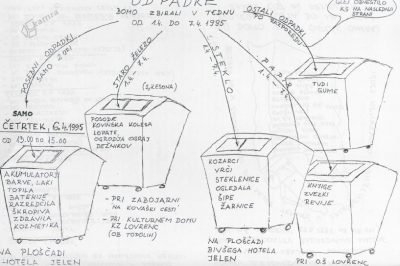 ODPADKE
BOMO ZBIRALI V TEDNU
OD 1.4. DO 7.4.1995
OSTALI ODPADKI
PO RAZPOREDU
GLEJ OBVESTILO
KS NA NASLEDNJI
STRANI
POSEBNI ODPADKI
SAMO 2 URI
STARO ŽELEZO
1.4. - 7.4.
STEKLO
PAPIR
1.4. - 7.4.
SAMO
ČETRTEK, 6.4.1995
OD 13.00 DO 15.00
AKUMULATORJI
BARVE, LAKI
TOPILA
BATERIJE
RAZREDČILA
ŠKROPIVA
ZDRAVILA
KOZMETIKA
NA PLOŠČADI
HOTELA JELEN
POSODE
KOVINSKA KOLESA
LOPATE,
OGRODJA OGRAJ
DEŽNIKOV
- PRI ZABOJARNI
NA KOVAŠKI CESTI
- PRI KULTURNEM DOMU
KZ LOVRENC
(OB TOPOLIH)
KOZARCI
VRČI
STEKLENICE
OGLEDALA
ŠIPE
ŽARNICE
NA PLOŠČADI
BIVŠEGA HOTELA
JELEN
TUDI
GUME
KNJIGE
ZVEZKI
REVIJE
PRI OŠ LOVRENC